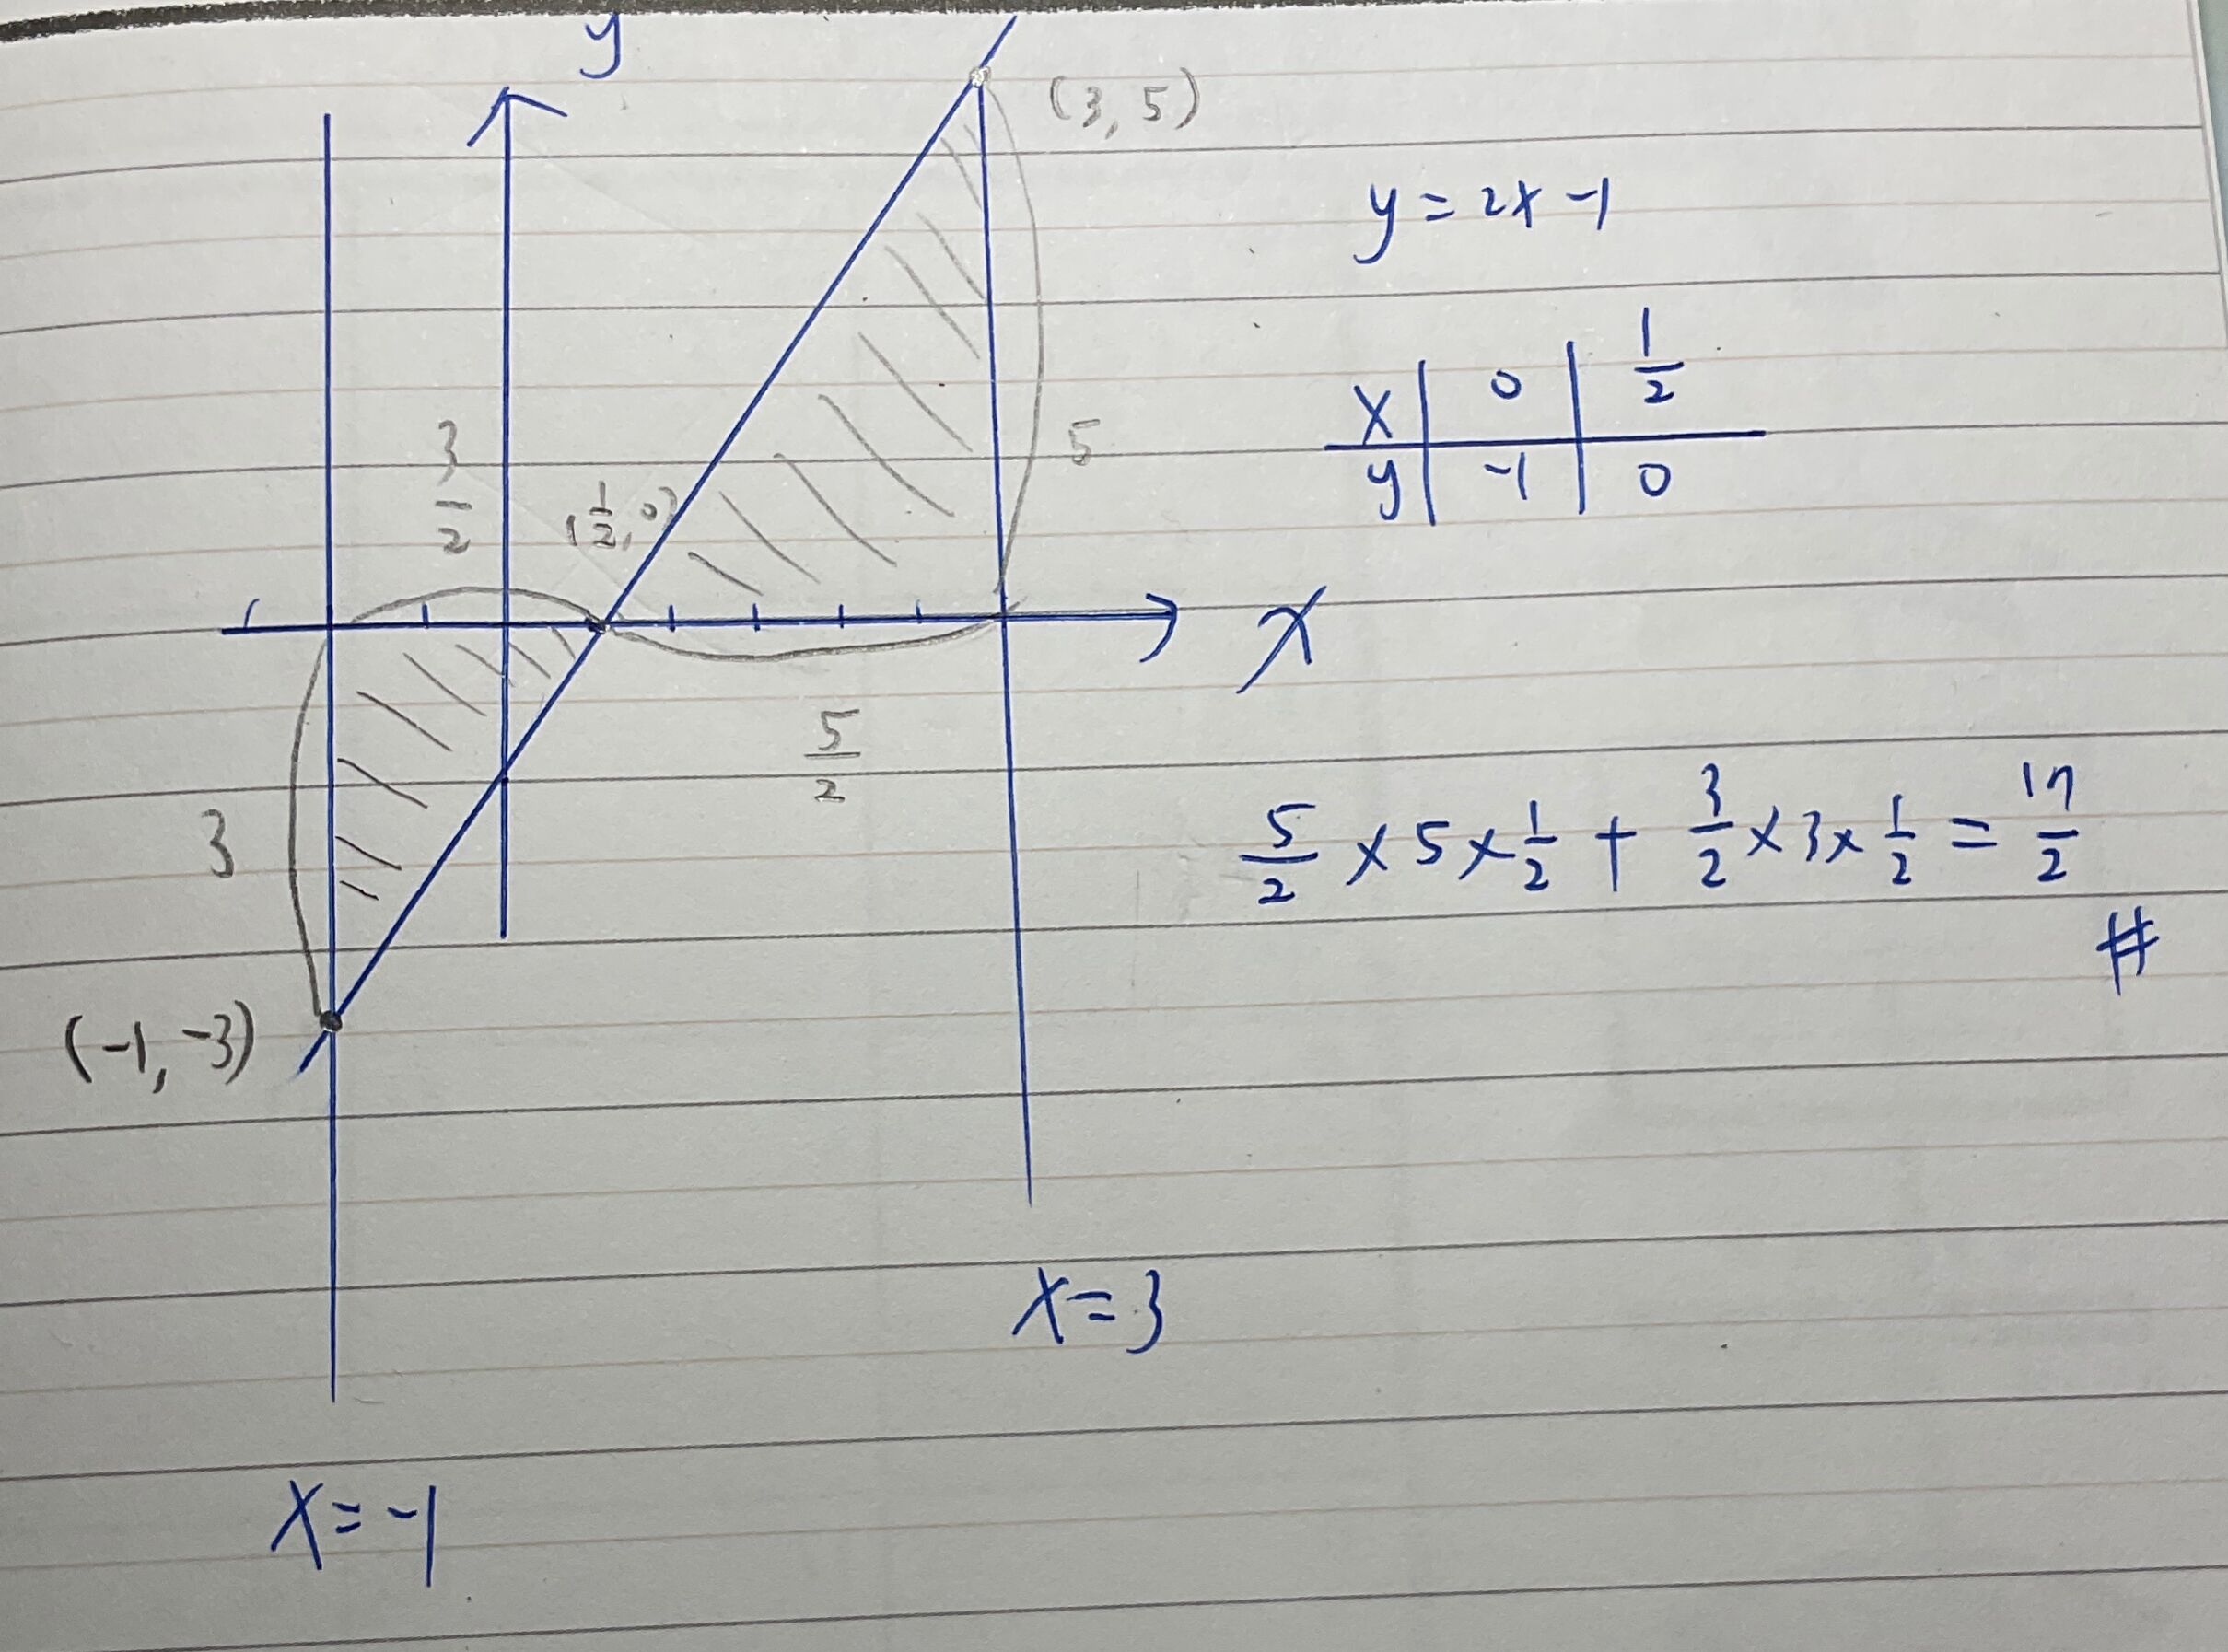 y
(3, 5)
y = 2x -1
x | 0 | 1/2
y | -1 | 0
3/2
(1/2, 0)
5
x
5/2
3
5/2 × 5 × 1/2 + 3/2 × 3 × 1/2 = 17/2
#
(-1, -3)
x = 3
x = -1